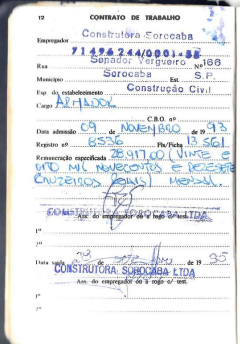 12 CONTRATO DE TRABALHO
Construtora Sorocaba
Empregador
71494244/0001-58
Rua Senador Vergueiro Nº 166
Município Sorocaba Est. S.P.
Esp do estabelecimento Construção Civil
Cargo ARMADOR
C.B.O. nº
Data admissão 09 de NOVEMBRO de 1993
Registro nº 8536 Fls/Ficha 13.561
Remuneração especificada 28.917,00 (VINTE E
OITO MIL NOVECENTOS E DEZESSETE
CRUZEIROS MENSAL
SOROCABA LTDA.
Ass. do empregador ou a rogo c/ test.
1º
2º
Data saída 23 de de 1995
CONSTRUTORA SOROCABA LTDA
Ass. do empregador ou a rogo c/ test.
1º
2º